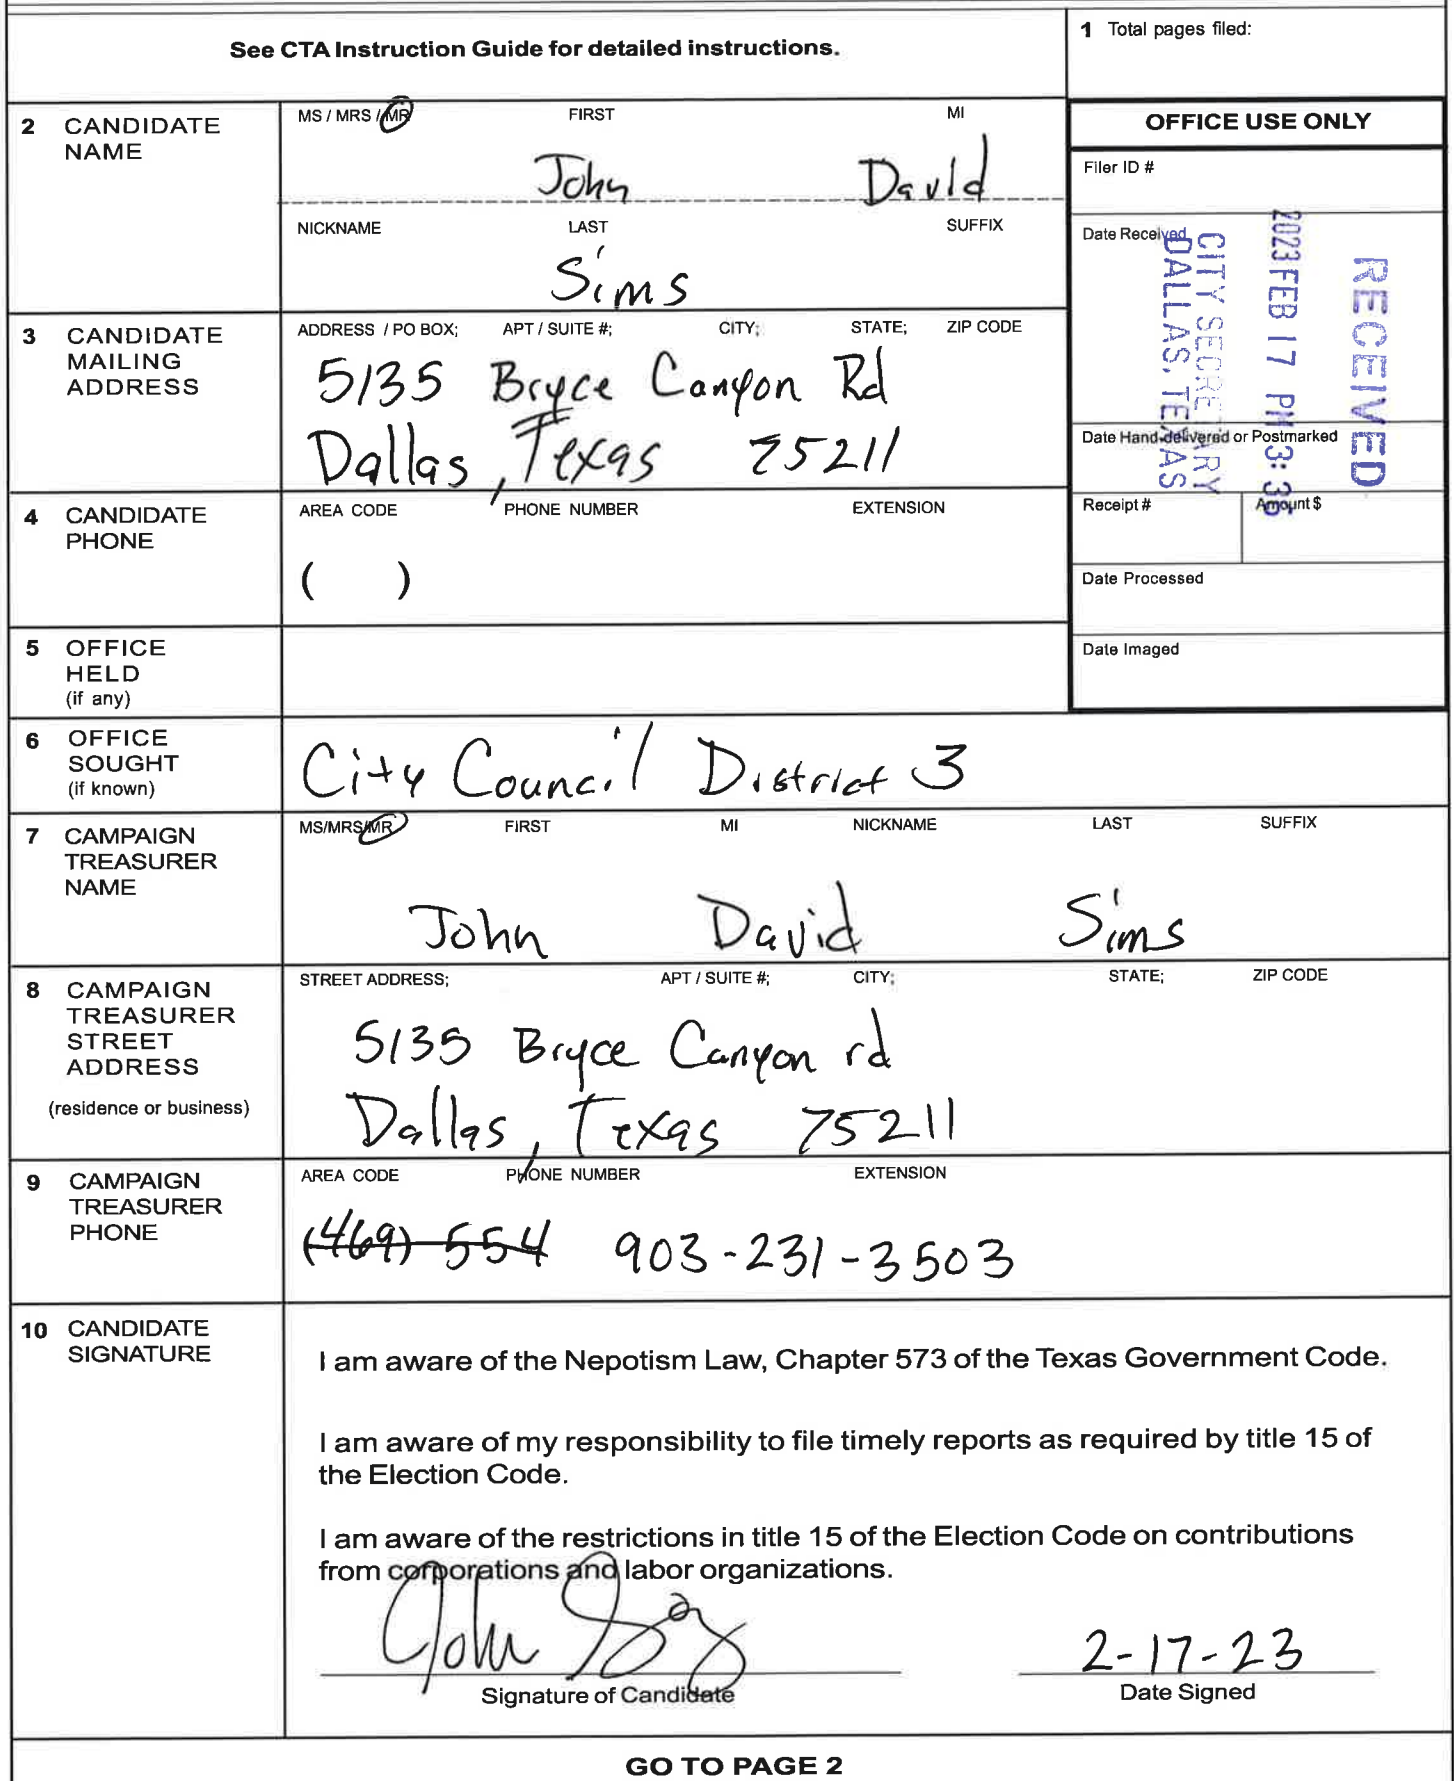 See CTA Instruction Guide for detailed instructions.
1 Total pages filed:
2 CANDIDATE
NAME
MS / MRS / MR
FIRST
MI
John David
NICKNAME
LAST
SUFFIX
Sims
OFFICE USE ONLY
Filer ID #
Date Received
RECEIVED
2023 FEB 17 PM 3:36
CITY SECRETARY
DALLAS, TEXAS
Date Hand-delivered or Postmarked
Receipt #
Amount $
Date Processed
Date Imaged
3 CANDIDATE
MAILING
ADDRESS
ADDRESS / PO BOX; APT / SUITE #; CITY; STATE; ZIP CODE
5135 Bryce Canyon Rd
Dallas, Texas 75211
4 CANDIDATE
PHONE
AREA CODE PHONE NUMBER EXTENSION
( )
5 OFFICE
HELD
(if any)
6 OFFICE
SOUGHT
(if known)
City Council District 3
7 CAMPAIGN
TREASURER
NAME
MS/MRS/MR FIRST MI NICKNAME LAST SUFFIX
John David Sims
8 CAMPAIGN
TREASURER
STREET
ADDRESS
(residence or business)
STREET ADDRESS; APT / SUITE #; CITY; STATE; ZIP CODE
5135 Bryce Canyon rd
Dallas, Texas 75211
9 CAMPAIGN
TREASURER
PHONE
AREA CODE PHONE NUMBER EXTENSION
(469) 554 903-231-3503
10 CANDIDATE
SIGNATURE
I am aware of the Nepotism Law, Chapter 573 of the Texas Government Code.
I am aware of my responsibility to file timely reports as required by title 15 of
the Election Code.
I am aware of the restrictions in title 15 of the Election Code on contributions
from corporations and labor organizations.
John
2-17-23
Signature of Candidate
Date Signed
GO TO PAGE 2